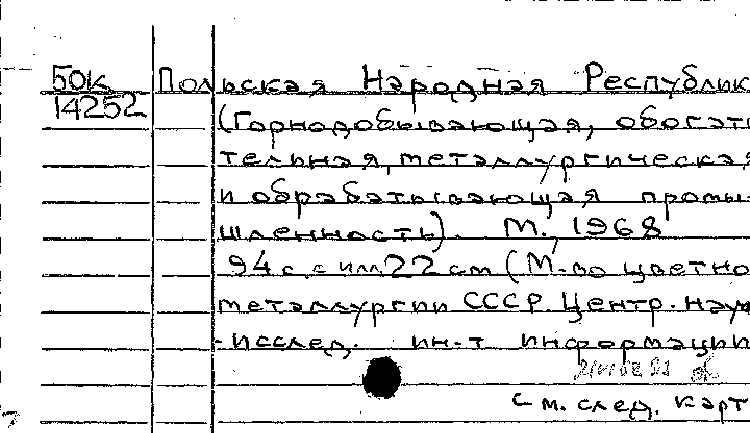 50к Польская Народная Республик
14252 (Горнодобывающая, обогати
тельная, металлургическая
и обрабатывающая промы-
шленность). М., 1968
94 с. с илл. 22 см (М-во цветно
металлургии СССР. Центр. науч
-исслед. ин-т информации
см. след. карт